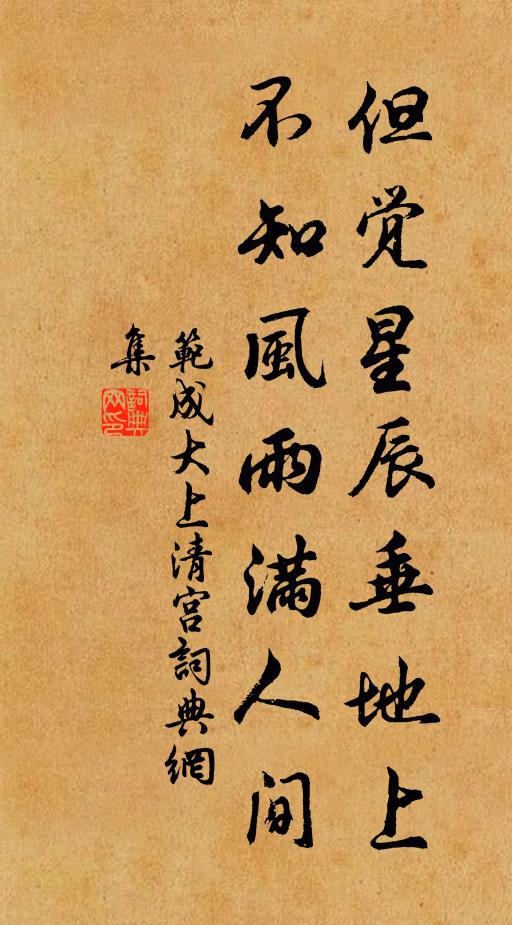 但觉星辰垂地上
不知風雨满人间
範成大上清宫詞典網
集
詞典
网印